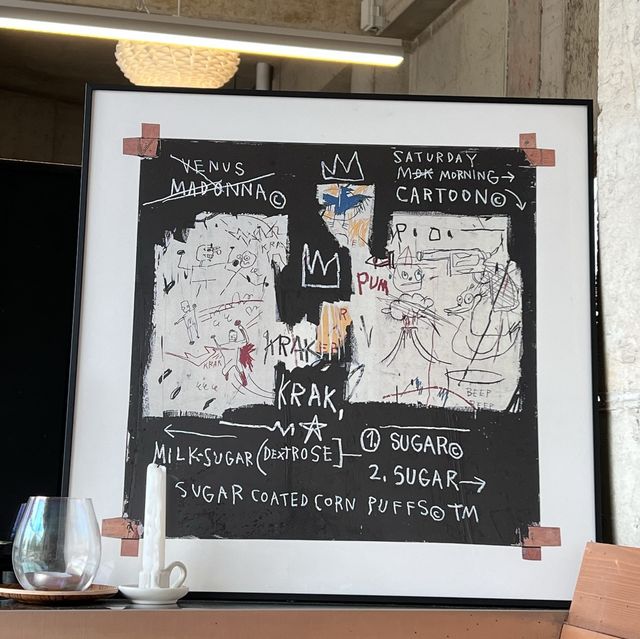 VENUS
MADONNA©
SATURDAY
MORNING→
CARTOON©
P.O.
PUM
R
KRAK
KRAK
KRAK,
BEEP
BEEP
MILK-SUGAR (DEXTROSE]
1. SUGAR©
2. SUGAR→
SUGAR COATED CORN PUFFS© TM